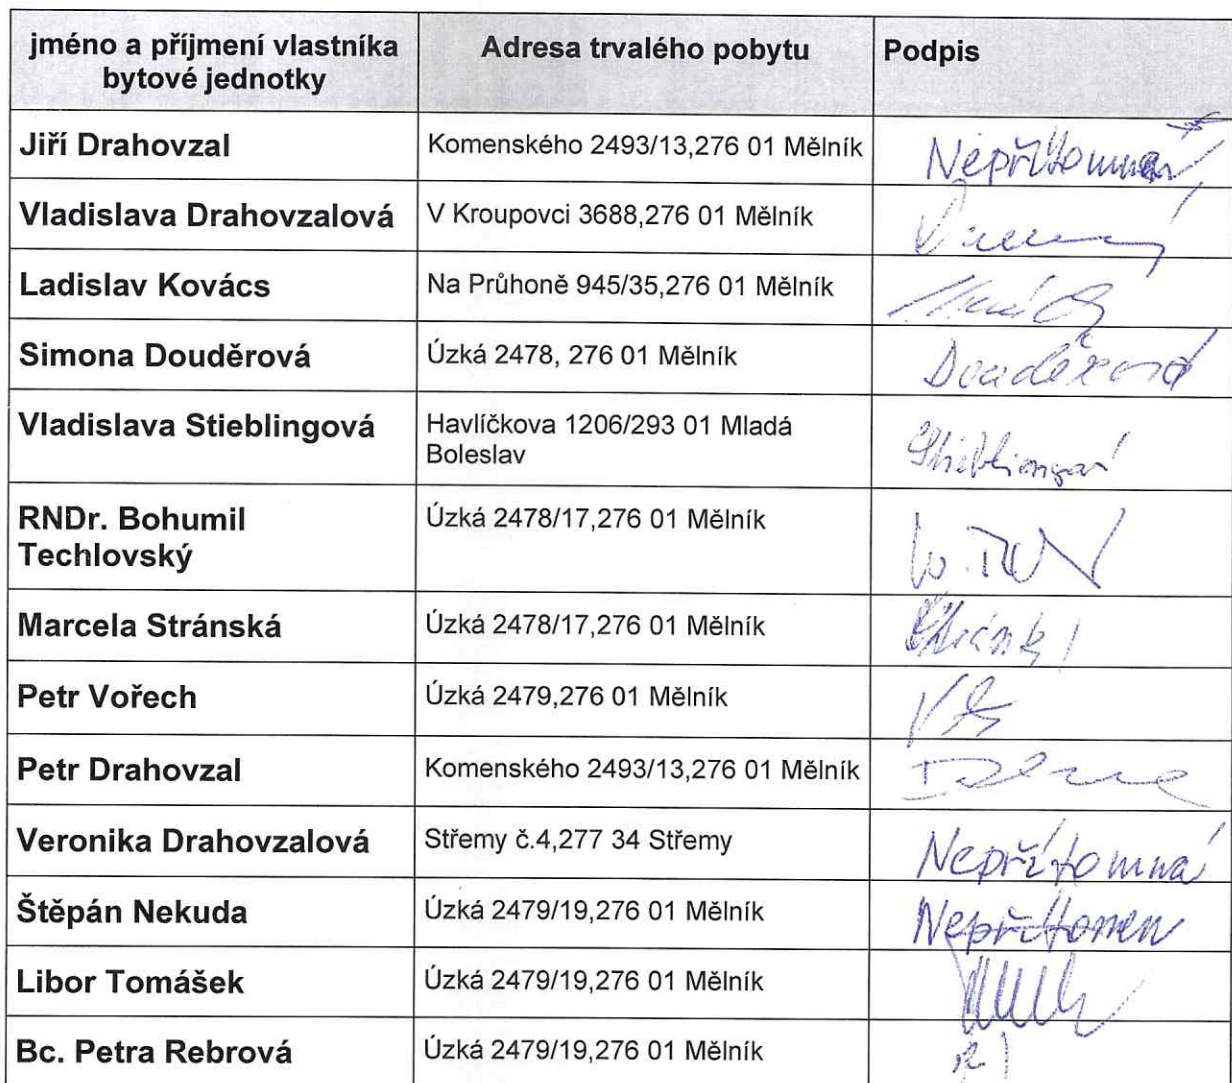 jméno a příjmení vlastníka bytové jednotky Adresa trvalého pobytu Podpis
Jiří Drahovzal Komenského 2493/13,276 01 Mělník
Vladislava Drahovzalová V Kroupovci 3688,276 01 Mělník
Ladislav Kovács Na Průhoně 945/35,276 01 Mělník
Simona Douděrová Úzká 2478, 276 01 Mělník
Vladislava Stieblingová Havlíčkova 1206/293 01 Mladá
Boleslav
RNDr. Bohumil Úzká 2478/17,276 01 Mělník
Techlovský
Marcela Stránská Úzká 2478/17,276 01 Mělník
Petr Vořech Úzká 2479,276 01 Mělník
Petr Drahovzal Komenského 2493/13,276 01 Mělník
Veronika Drahovzalová Střemy č.4,277 34 Střemy Nepřítomná
Štěpán Nekuda Úzká 2479/19,276 01 Mělník Nepřítomen
Libor Tomášek Úzká 2479/19,276 01 Mělník
Bc. Petra Rebrová Úzká 2479/19,276 01 Mělník